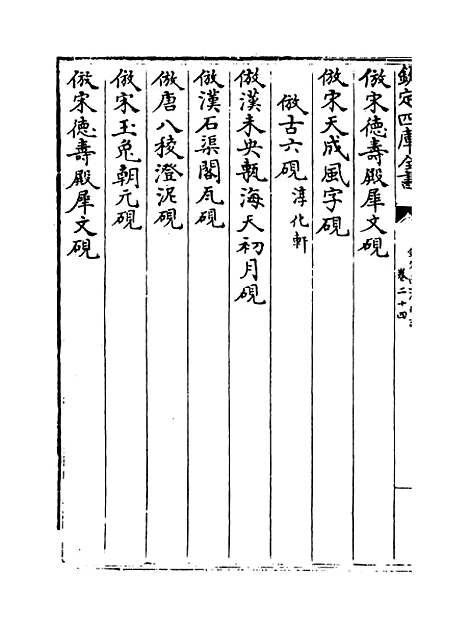 欽定四庫全書
卷二十四
倣宋德壽殿犀文硯
倣宋天成風字硯
倣古六硯淳化軒
倣漢未央甎海天初月硯
倣漢石渠閣瓦硯
倣唐八稜澄泥硯
倣宋玉兔朝元硯
倣宋德壽殿犀文硯